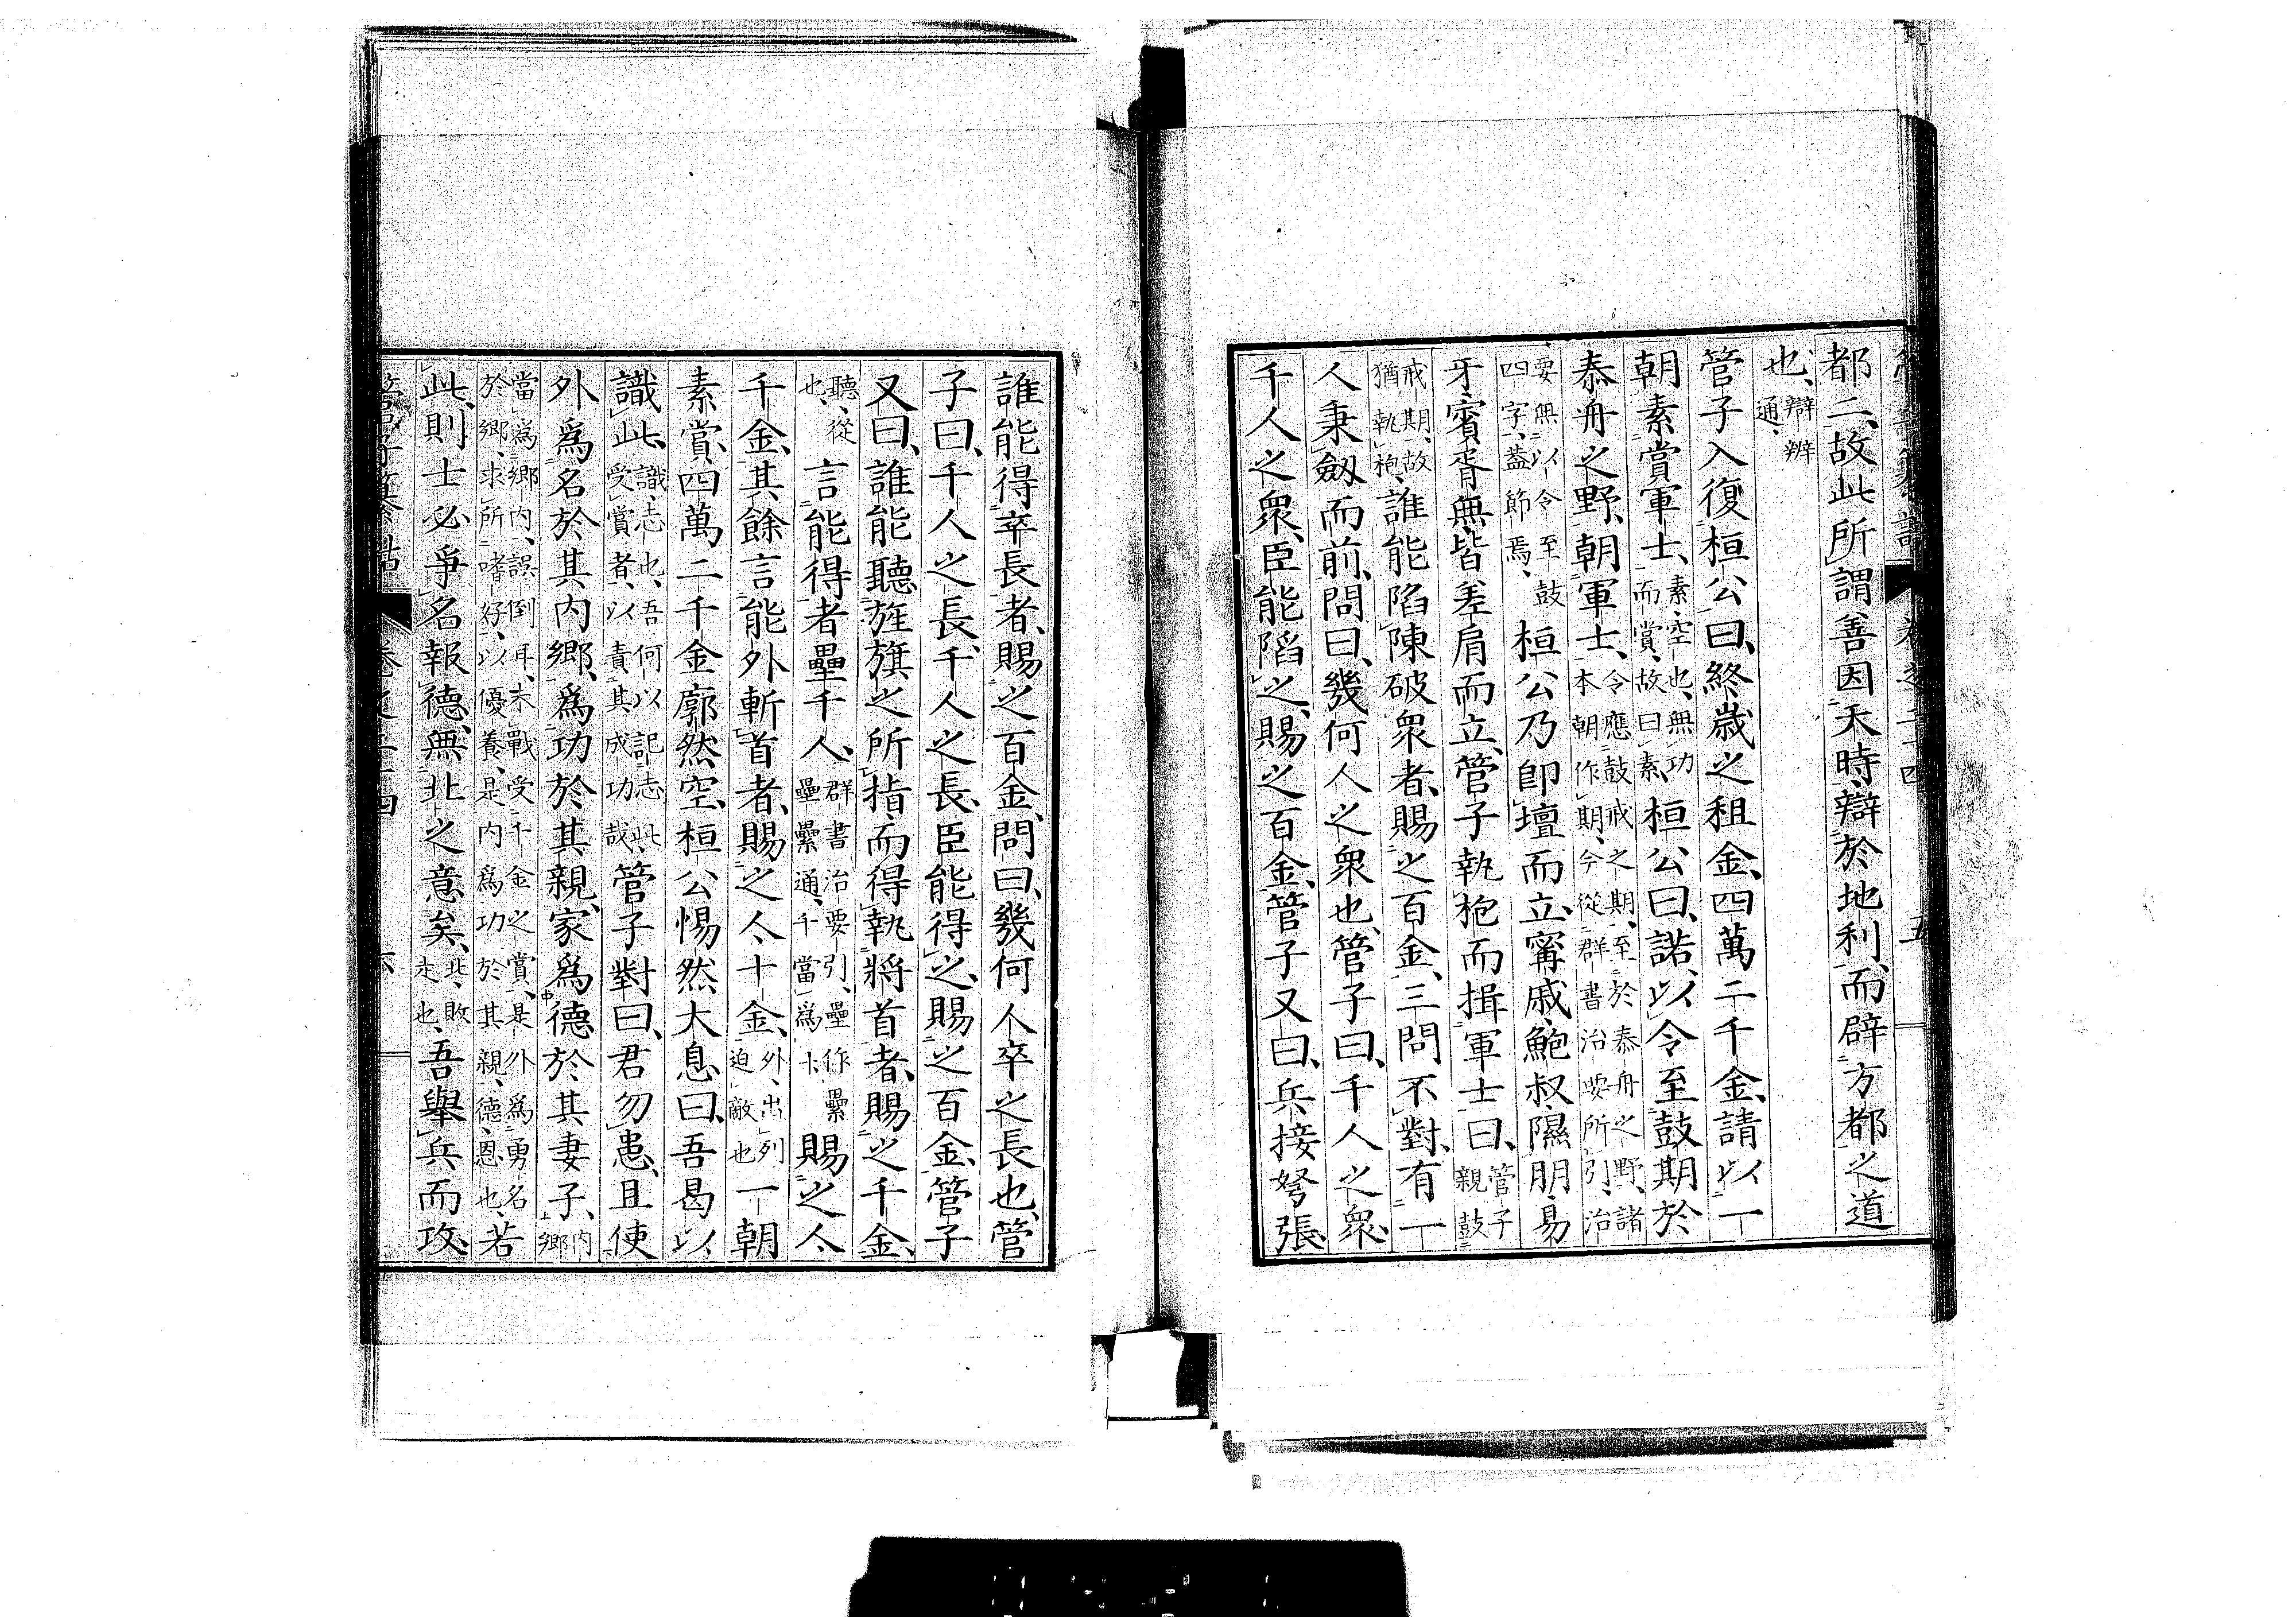 管子纂詁　卷之二十四　五
都二、故此所謂善因天時、辯於地利、而辟方都之道
也、辯辨通、
管子入復桓公曰、終歲之租金、四萬二千金、請以一
朝素賞軍士、素、空也、無功而賞、故曰素、桓公曰、諾、以令至鼓期於
泰舟之野、朝軍士、令應鼓戒之期、至於泰舟之野、諸本朝作期、今從群書治要所引、治
要無以令至鼓四字、蓋節焉、桓公乃卽壇而立、甯戚、鮑叔、隰朋、易
牙、賓胥無、皆差肩而立、管子執枹而揖軍士曰、管子親鼓
戒期、故猶執枹、誰能陷陳破衆者、賜之百金、三問不對、有一
人秉劔而前、問曰、幾何人之衆也、管子曰、千人之衆、
千人之衆、臣能陷之、賜之百金、管子又曰、兵接弩張、
誰能得卒長者、賜之百金、問曰、幾何人卒之長也、管
子曰、千人之長、千人之長、臣能得之、賜之百金、管子
又曰、誰能聽旌旗之所指、而得執將首者、賜之千金、
聽、從也、言能得者壘千人、群書治要引、壘作纍壘纍通、千當爲十賜之人
千金、其餘言能外斬首者、賜之人十金、外、出列迫敵也一朝
素賞、四萬二千金廓然空、桓公惕然大息曰、吾曷以
識此、識、志也、吾何以記志此受賞者、以責其成功哉、管子對曰、君勿患、且使
外爲名於其內鄉、爲功於其親、家爲德於其妻子、內鄉
當爲鄉內、誤倒耳、未戰受千金之賞、是外爲勇名於鄉、求所嗜好、以優養、是內爲功於其親、德、恩也、若
此、則士必爭名報德、無北之意矣、北、敗走也、吾舉兵而攻、
管子纂詁　卷之二十四　六